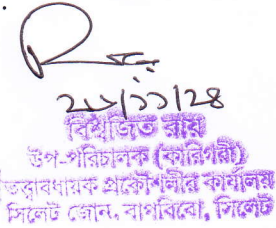 ২১/১১/২৪
বিশ্বজিত রায়
উপ-পরিচালক (কারিগরী)
তত্ত্বাবধায়ক প্রকৌশলীর কার্যালয়
সিলেট জোন, বাপবিবো, সিলেট